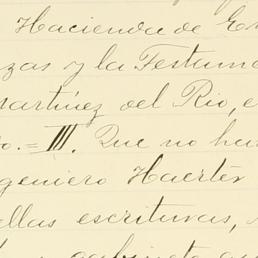 Hacienda de En
zas y la Testame
Martinez del Rio, e
o. = III. Que no ha
geniero Haerter
ellas escrituras,